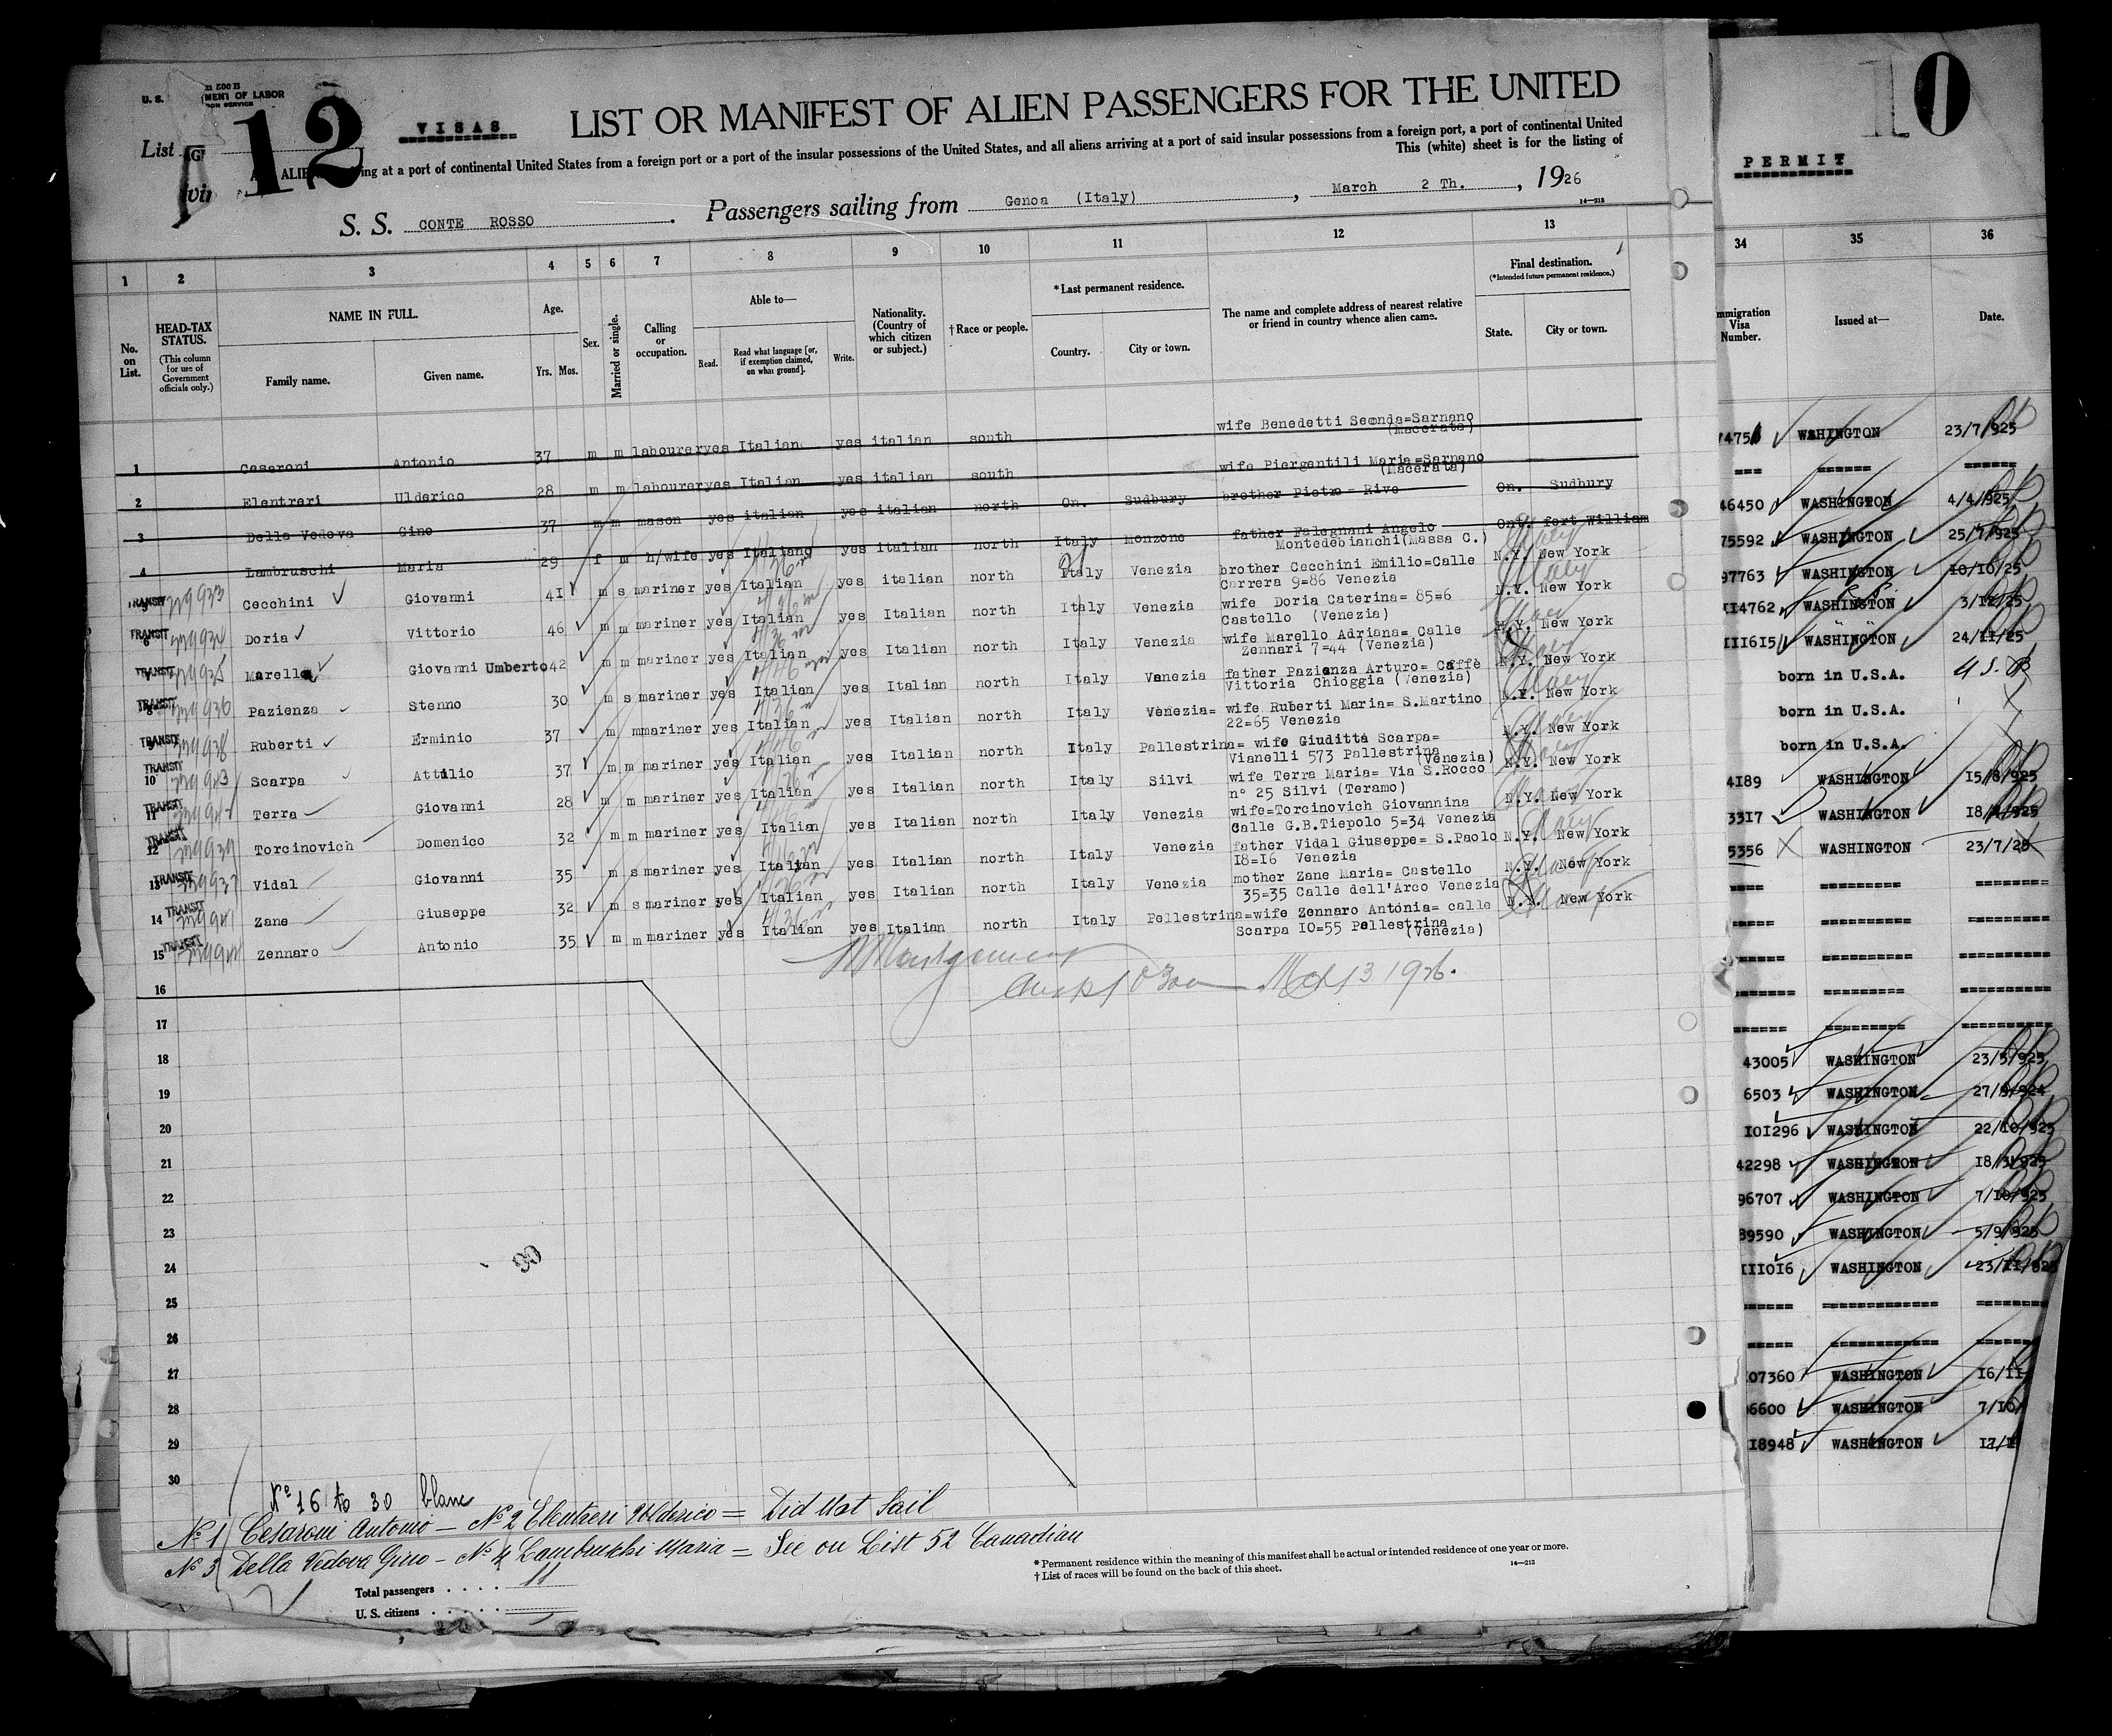 U. S. MENT OF LABOR
List 12 VISAS LIST OR MANIFEST OF ALIEN PASSENGERS FOR THE UNITED
ALIE ing at a port of continental United States from a foreign port or a port of the insular possessions of the United States, and all aliens arriving at a port of said insular possessions from a foreign port, a port of continental United
This (white) sheet is for the listing of
S. S. CONTE ROSSO . Passengers sailing from Genoa (Italy) , March 2 Th. , 1926
14—213
1 2 3 4 5 6 7 8 9 10 11 12 13
No. on List. HEAD-TAX STATUS. (This column for use of Government officials only.) NAME IN FULL. Family name. Given name. Age. Yrs. Mos. Sex. Married or single. Calling or occupation. Able to— Read. Read what language [or, if exemption claimed, on what ground]. Write. Nationality. (Country of which citizen or subject.) † Race or people. * Last permanent residence. Country. City or town. The name and complete address of nearest relative or friend in country whence alien came. Final destination. (*Intended future permanent residence.) State. City or town.
1 Cesaroni Antonio 37 m m labourer yes Italian yes italian south wife Benedetti Seconda=Sarnano (Macerata)
2 Elentreri Ulderico 28 m m labourer yes Italian yes italian south wife Piergentili Maria=Sarnano (Macerata)
3 Della Vedova Gino 37 m m mason yes italian yes italian north On. Sudbury brother Pietro= Rive On. Sudbury
4 Lambruschi Maria 29 f m h/wife yes Italiano yes italian north Italy Monzone father Falegnani Angelo Montedebianchi(Massa C.) Ont. fort William
TRANSIT 5 Cecchini Giovanni 41 m s mariner yes Italian yes italian north Italy Venezia brother Cecchini Emilio=Calle Carrera 9=86 Venezia N.Y. New York
TRANSIT 6 Doria Vittorio 46 m m mariner yes Italian yes Italian north Italy Venezia wife Doria Caterina= 85=6 Castello (Venezia) N.Y. New York
TRANSIT 7 Marella Giovanni Umberto 42 m m mariner yes Italian yes Italian north Italy Venezia wife Marello Adriana= Calle Zennari 7=44 (Venezia) N.Y. New York
TRANSIT 8 Pazienza Stenno 30 m s mariner yes Italian yes Italian north Italy Venezia father Pazienza Arturo= Caffè Vittoria Chioggia (Venezia) N.Y. New York
TRANSIT 9 Ruberti Erminio 37 m m mariner yes Italian yes Italian north Italy Venezia= wife Ruberti Maria= S.Martino 22=65 Venezia N.Y. New York
TRANSIT 10 Scarpa Attilio 37 m m mariner yes Italian yes Italian north Italy Pallestrina= wife Giuditta Scarpa= Vianelli 573 Pallestrina (Venezia) N.Y. New York
TRANSIT 11 Terra Giovanni 28 m m mariner yes Italian yes Italian north Italy Silvi wife Terra Maria= Via S.Rocco n° 25 Silvi (Teramo) N.Y. New York
TRANSIT 12 Torcinovich Domenico 32 m m mariner yes Italian yes Italian north Italy Venezia wife=Torcinovich Giovannina Calle G.B.Tiepolo 5=34 Venezia N.Y. New York
TRANSIT 13 Vidal Giovanni 35 m s mariner yes Italian yes Italian north Italy Venezia father Vidal Giuseppe= S.Paolo 18=16 Venezia N.Y. New York
TRANSIT 14 Zane Giuseppe 32 m s mariner yes Italian yes Italian north Italy Venezia mother Zane Maria= Castello 35=35 Calle dell'Arco Venezia N.Y. New York
TRANSIT 15 Zennaro Antonio 35 m m mariner yes Italian yes Italian north Italy Pellestrina=wife Zennaro Antonia= calle Scarpa 10=55 Pellestrina (Venezia) N.Y. New York
16
17
18
19
20
21
22
23
24
25
26
27
28
29
30
90
Nº 16 to 30 blanc
Nº 1 Cesaroni Antonio — Nº 2 Elentreri Ulderico = Did Not Sail
Nº 3 Della Vedova Gino — Nº 4 Lambruschi Maria = See on List 52 Canadian
Total passengers . . . . 11
U. S. citizens . . . . .
* Permanent residence within the meaning of this manifest shall be actual or intended residence of one year or more.
† List of races will be found on the back of this sheet.
14—213
10
PERMIT
34 35 36
mmigration Visa Number. Issued at— Date.
WASHINGTON 23/7/925
=== ====== ======
46450 WASHINGTON 4/4/925
75592 WASHINGTON 25/7/925
97763 WASHINGTON 10/10/25
114762 WASHINGTON 3/12/25
111615 WASHINGTON 24/11/25
born in U.S.A. U.S.
born in U.S.A.
born in U.S.A.
4189 WASHINGTON 15/8/925
3317 WASHINGTON
5356 WASHINGTON 23/7/25
==== ========= ========
==== ========= ========
==== ========= ========
====== ========= ==========
====== ========= ==========
43005 WASHINGTON 23/5/925
6503 WASHINGTON 27/9/924
101296 WASHINGTON 22/10/925
42298 WASHINGTON 18/3/925
96707 WASHINGTON 7/10/925
89590 WASHINGTON 5/9/925
111016 WASHINGTON 23/11/925
====== ============ ========
===== ============ ========
07360 WASHINGTON 16/11
6600 WASHINGTON 7/10/
18948 WASHINGTON 17/1